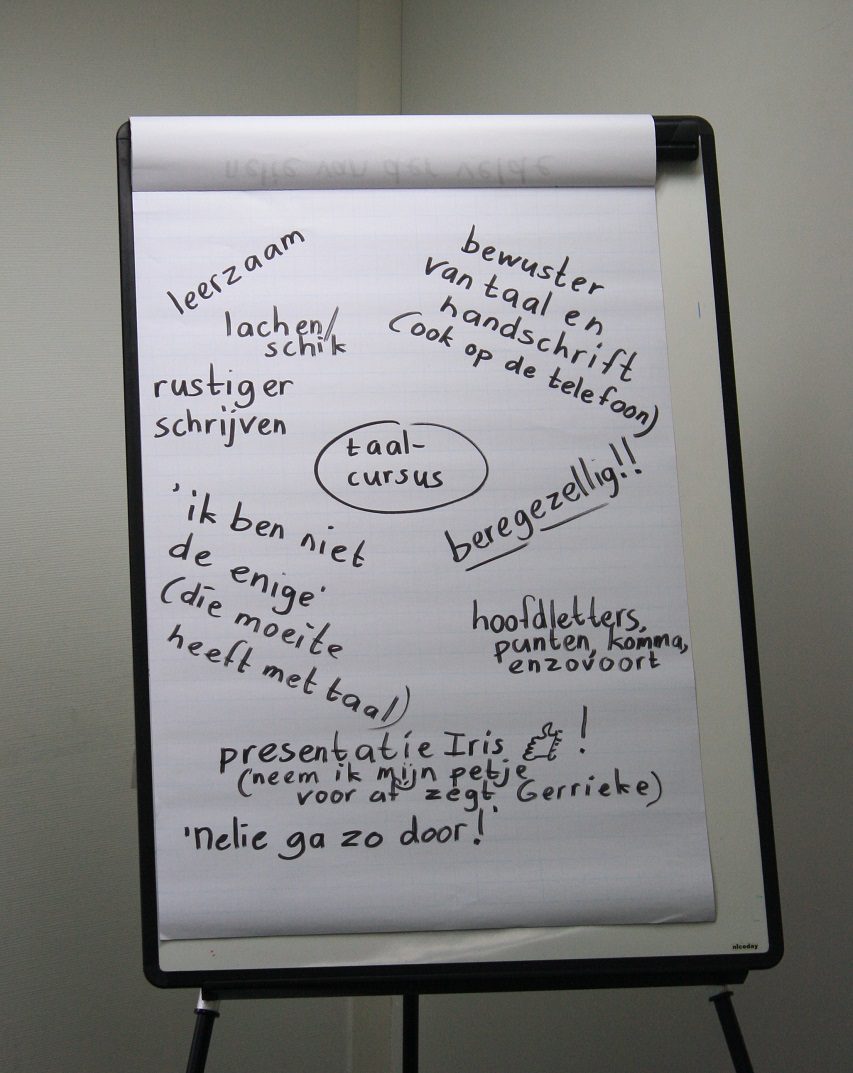 nelie van der velde
leerzaam
lachen/
schik
rustiger
schrijven
bewuster
van taal en
handschrift
(ook op de telefoon)
taal-
cursus
beregezellig!!
'ik ben niet
de enige'
(die moeite
heeft met taal)
hoofdletters,
punten, komma,
enzovoort
presentatie Iris !
(neem ik mijn petje
voor af zegt Gerrieke)
'nelie ga zo door!'
niceday